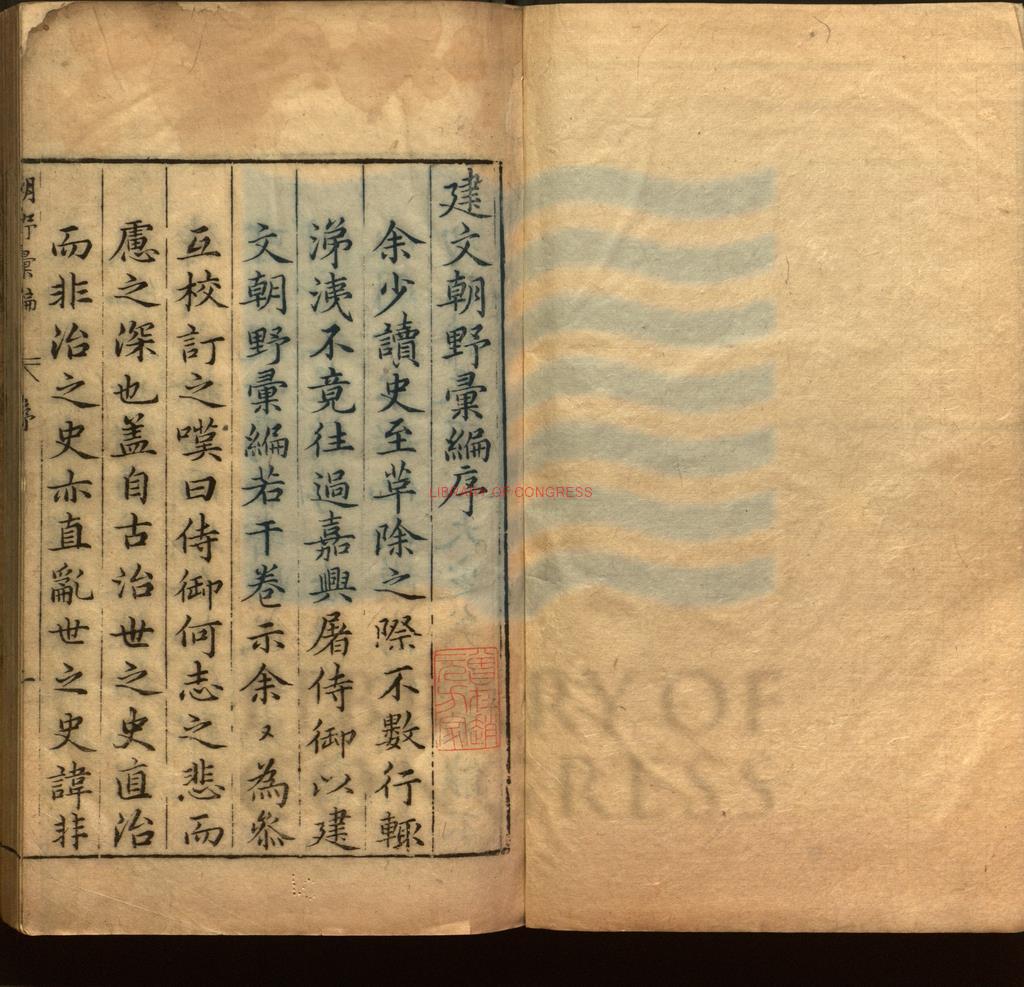 建文朝野彙編序
余少讀史至草除之際不數行輙
涕洟不竟往過嘉興屠侍御以建
文朝野彙編若干卷示余〻為叅
互校訂之嘆曰侍御何志之悲而
慮之深也盖自古治世之史直治
而非治之史亦直亂世之史諱非
朝野彙編
序
一
LIBRARY OF CONGRESS